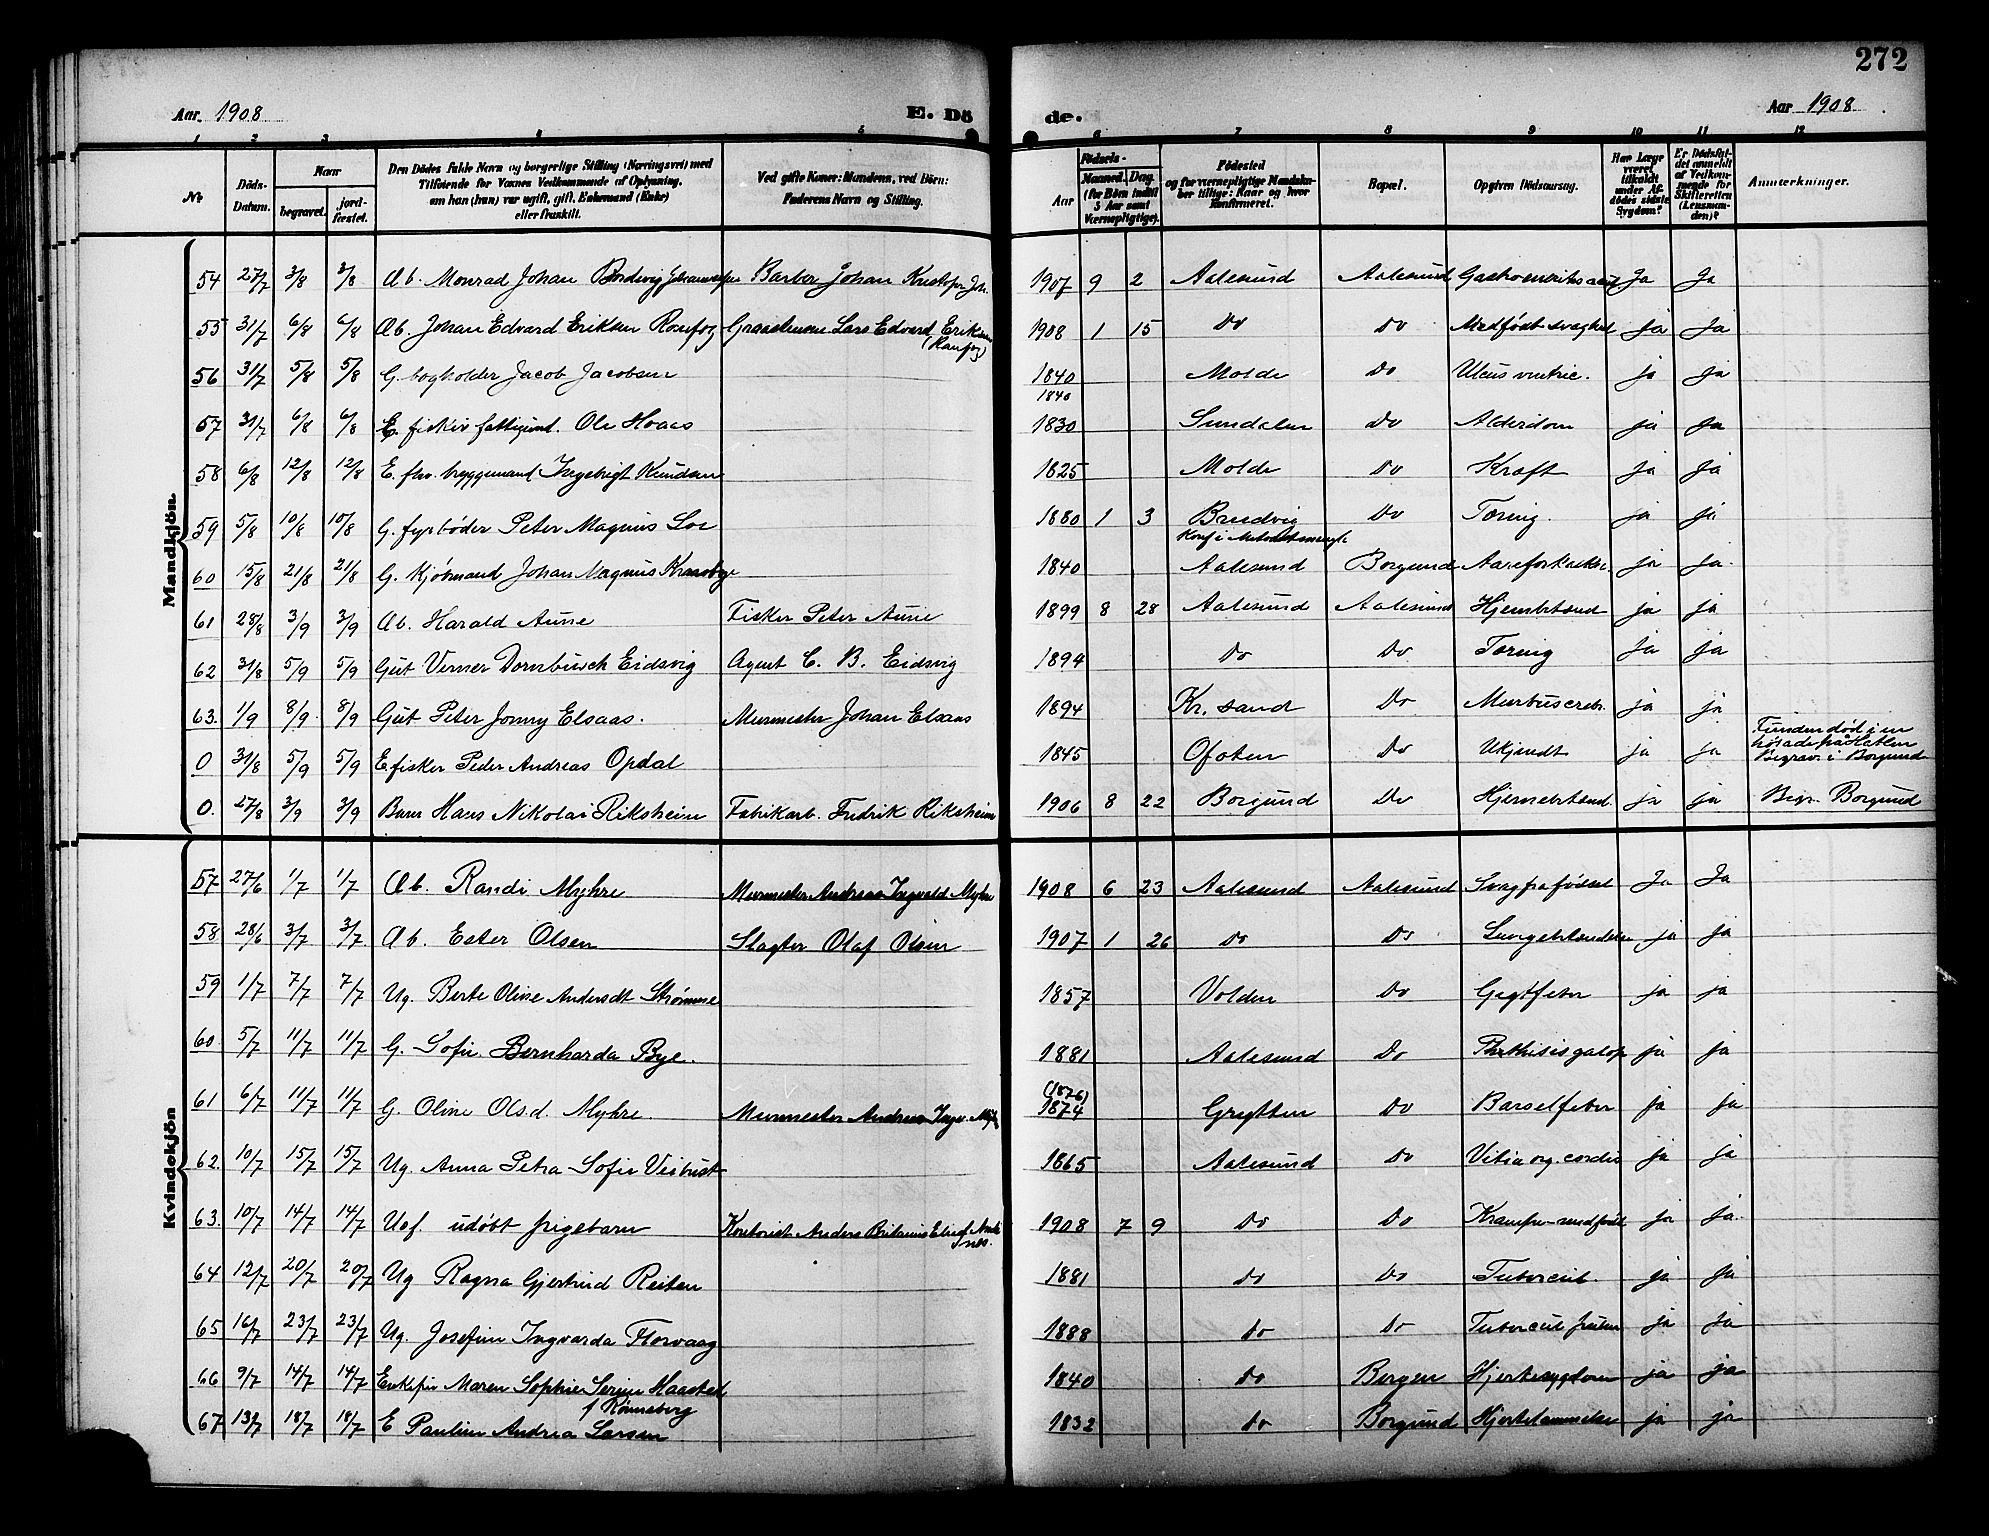 272
Aar 1908
E. Dö
de.
Aar 1908
1 2 3 4 5 6 7 8 9 10 11 12
№
Döds-Datum.
Naar
begravet.
jordfæstet.
Den Dödes fulde Navn og borgerlige Stilling (Næringsvei) med
Tilföiende for Voxnes Vedkommende af Oplysning,
om han (hun) var ugift, gift, Enkemand (Enke)
eller fraskilt.
Ved gifte Koner: Mandens, ved Börn:
Faderens Navn og Stilling.
Födsels-
Aar
Maaned. Dag.
(for Börn indtil 5 Aar samt Værnepligtige).
Födested
og for værnepligtige Mandskaber tillige: Naar og hvor konfirmeret.
Bopæl.
Opgiven Dödsaarsag.
Har Læge været tilkaldt under Afdödes sidste Sygdom?
Er Dödsfaldet anmeldt af Vedkommende for Skifteretten (Lensmanden)?
Anmærkninger.
Mandkjön
54 27/7 3/8 3/8 Æb. Monrad Johan Johannessen Barber Johan Kristofer Joh. 1907 9 2 Aalesund Aalesund Ja Ja
55 31/7 6/8 6/8 Æb. Johan Edvard Eriksen Lars Edvard Eriksen 1908 1 15 Do Do Medfødt svaghed ja Ja
56 31/7 5/8 5/8 G. bogholder Jacob Jacobsen 1840 Molde Do Ulcus ventric. ja ja
1840
57 31/7 6/8 6/8 E. fisker fattigund. Ole Hoaas 1830 Sundalen Do Alderdom ja ja
58 6/8 12/8 12/8 E. fhv. bryggemand Ingebrigt Knudsen 1825 Molde Do Kræft ja ja
59 5/8 10/8 10/8 G. fyrbøder Peter Magnus Loe 1880 1 3 Brudvig Do Tæring. ja ja
60 15/8 21/8 21/8 G. Kjøbmand Johan Magnus 1840 Aalesund Borgund Aareforkalkn. ja ja.
61 28/8 3/9 3/9 Æb. Harald Aune Fisker Peter Aune 1899 8 28 Aalesund Aalesund ja ja
62 31/8 5/9 5/9 Gut Verner Dornbusch Eidsvig Agent C. B. Eidsvig 1894 Do Do Tæring ja ja
63. 1/9 8/9 8/9 Gut Peter Jonny Elsaas. Murmester Johan Elsaas 1894 Kr. sand Do ja ja
0 31/8 5/9 5/9 E fisker Peder Andreas Opdal 1845 Ofoten Do Ukjendt ja ja Funden død i en
Begrav. i Borgund
0. 27/8 3/9 3/9 Barn Hans Nikolai Riksheim Fabrikarb. Fredrik Riksheim 1906 8 22 Borgund Do Hjernebetænd. ja ja Begr. Borgund
Kvindekjön
57 27/6 1/7 1/7 Æb. Randi Myhre Murmester Andreas Ingvald Myhre 1908 6 23 Aalesund Aalesund Svag fra fødsel Ja Ja
58 28/6 3/7 3/7 Æb. Ester Olsen Slagter Olaf Olsen 1907 1 26 Do Do Lungebetændelse ja ja
59 1/7 7/7 7/7 Ug. Berte Oline Andersdt 1857 Volden Do Gigtfeber ja ja
60 5/7 11/7 11/7 G. Sofie Bernharda Bye. 1881 Aalesund Do Phthisis galop ja ja
(1876)
61 6/7 11/7 11/7 G. Oline Olsd. Myhre. Murmester Andreas Ingv. Myhre 1874 Grytten Do Barselfeber ja ja
62. 10/7 15/7 15/7 Ug. Anna Petra Sofie 1865 Aalesund Do Vitia org. cordis ja ja
63. 10/7 14/7 14/7 Uef. udøbt pigebarn Kontorist Anders 1908 7 9 Do Do Krampe-medfødt ja ja.
64 12/7 20/7 20/7 Ug Ragna Gjertrud Reiten 1881 do Do Tubercul. ja ja
65 16/7 23/7 23/7 Ug. Josefine Ingvarda Florvaag 1888 do Do Tubercul pulm ja ja
66 9/7 14/7 14/7 Enkefru Maren Sophie Serine Haastad 1840 do Bergen Hjertesygdom ja ja
f. Rønneberg
67 13/7 18/7 18/7 E Pauline Andrea Larsen 1832 do Borgund Hjertelammelse ja ja